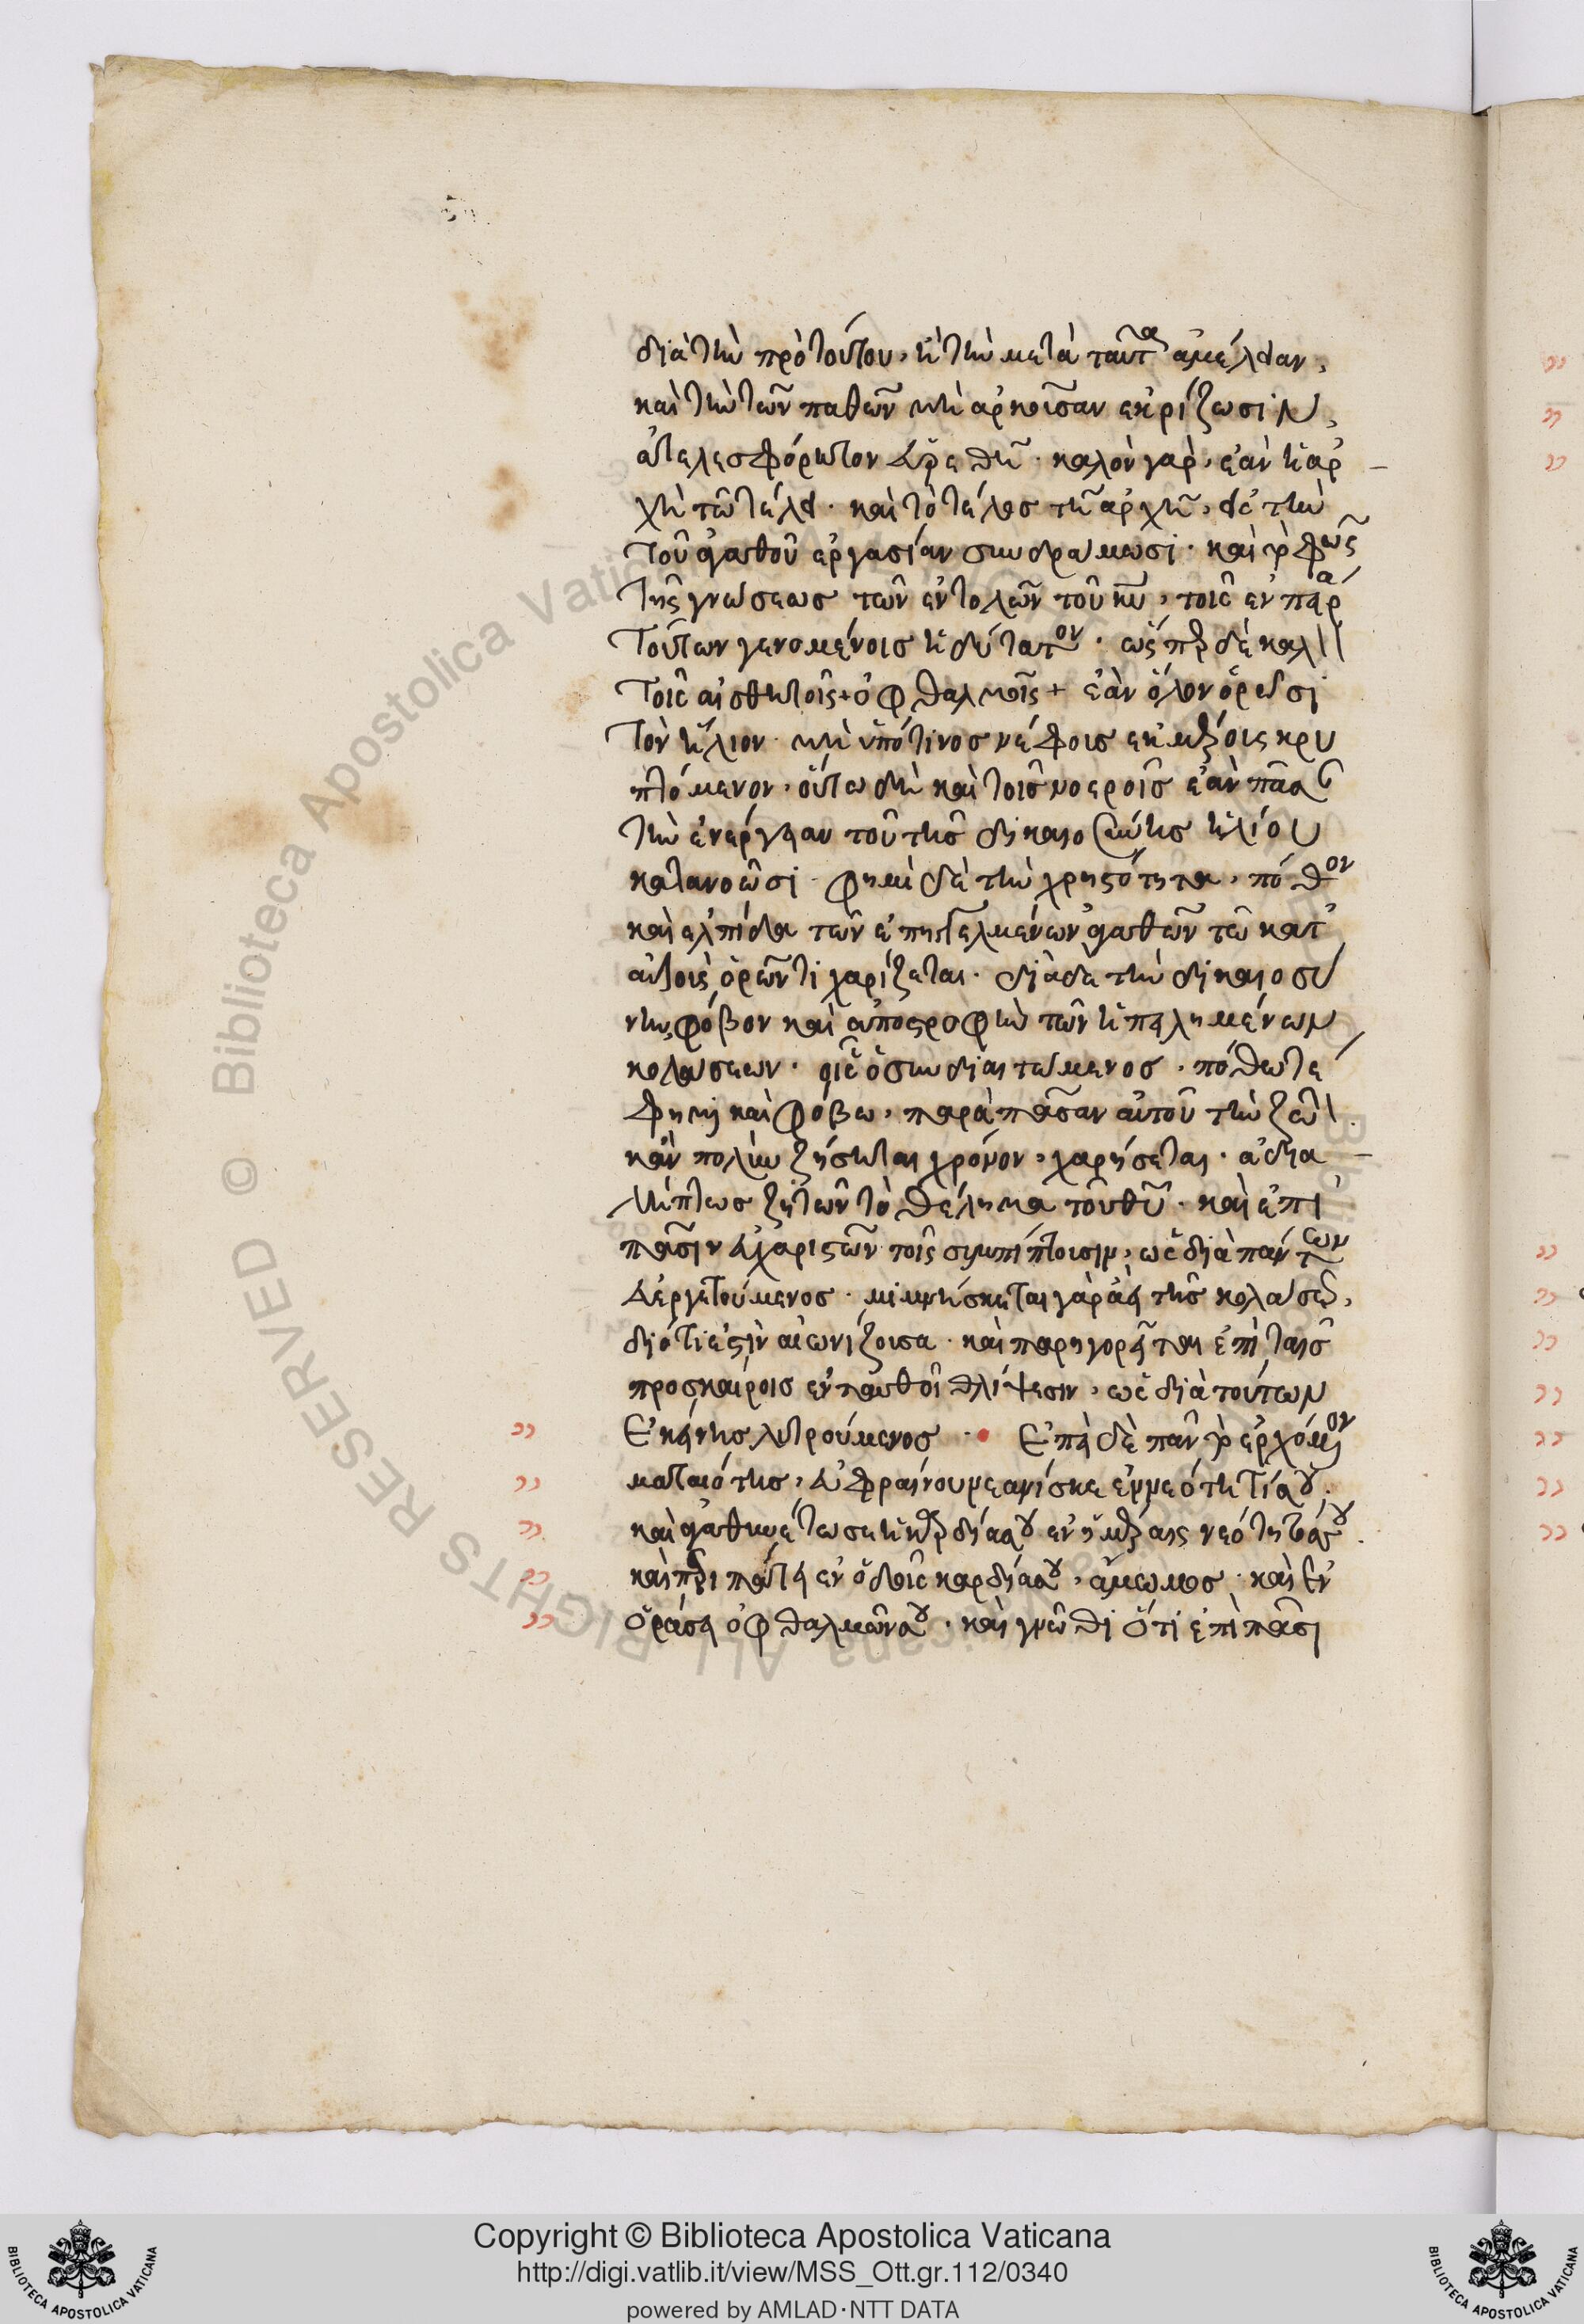 διὰ τὴν πρὸ τούτου, ἢ τὴν μετὰ ταῦτα ἀμέλειαν,
καὶ τὴν τῶν παθῶν μὴ ἀρκοῦσαν ἐκρίζωσιν,
ἀτελεσφόρητον εὑρεθῆ· καλὸν γὰρ, ἐὰν ἡ ἀρ
χὴ τῶ τέλει· καὶ τὸ τέλος τῆ ἀρχῆ, εἰς τὴν
τοῦ ἀγαθοῦ ἐργασίαν συνδράμωσι· καὶ τὸ φῶς
τῆς γνώσεως τῶν ἐντολῶν τοῦ κυ, τοῖς ἐν πείρα
τούτων γενομένοις ἡδύτατον· ὥσπερ δὲ καλ
τοῖς αἰσθητοῖς + ὀφθαλμοῖς + ἐὰν ὅλον ὁρῶσι
τὸν ἥλιον· μὴ ὑπό τινος νέφους ἐκ μέρους κρυ
πτόμενον, οὕτω δὴ καὶ τοῖς νοεροῖς ἐὰν πᾶσαν
τὴν ἐνέργειαν τοῦ τῆς δικαιοσύνης ἡλίου
κατανοῶσι· φημὶ δὲ τὴν χρηστότητα, πόθον
καὶ ἐλπίδα τῶν ἐπηγγελμένων ἀγαθῶν τῶ κατ'
αὐτοὺς ὁρῶντι χαρίζεται· διὰ δὲ τὴν δικαιοσύ
νην, φόβον καὶ ἀποστροφὴν τῶν ἠπειλημένων
κολάσεων· οἷς ὁ συνδιαιτώμενος, πόθω τέ
φημι καὶ φόβω, παρὰ πᾶσαν αὐτοῦ τὴν ζωὴν
κἂν πολὺν ζήσηται χρόνον, χαρήσεται· ἀδια
λείπτως ζητῶν τὸ θέλημα τοῦ θυ· καὶ ἐπὶ
πᾶσιν εὐχαριστῶν τοῖς συμπίπτουσιν, ὡς διὰ πάντων
εὐεργετούμενος· μιμνήσκεται γὰρ ἀεὶ τῆς κολάσεως,
διότι ἐστὶν αἰωνίζουσα· καὶ παρηγορεῖται ἐπὶ ταῖς
προσκαίροις ἐνταυθοῖ θλίψεσιν, ὡς διὰ τούτων
Ἐκείνης λυτρούμενος · Ἐπεὶ δὲ πᾶν τὸ ἐρχόμενον
ματαιότης, εὐφραίνου νεανίσκε ἐν νεότητί σου·
καὶ ἀγαθυνέτω σε ἡ καρδία σου ἐν ἡμέραις νεότητός σου·
καὶ περιπάτει ἐν ὁδοῖς καρδίας σου, ἄμωμος· καὶ ἐν
ὁράσει ὀφθαλμῶν σου· καὶ γνῶθι ὅτι ἐπὶ πᾶσι
Copyright © Biblioteca Apostolica Vaticana
http://digi.vatlib.it/view/MSS_Ott.gr.112/0340
powered by AMLAD·NTT DATA